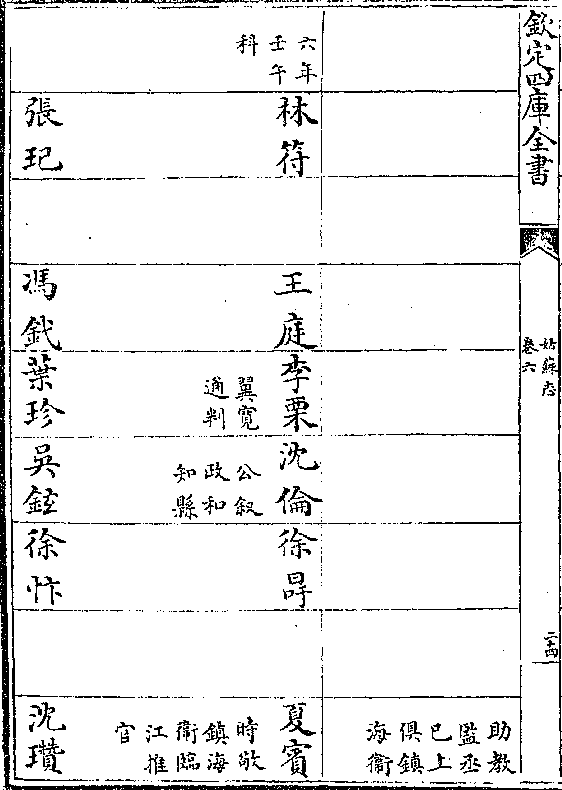 欽定四庫全書
姑蘇志
卷六
二十四
助教
監丞
已上
俱鎮
海衛
六年
壬午
科
林符
王庭
李栗
翼寛
通判
沈倫
公叙
政和
知縣
徐
夏賓
時敬
鎮海
衛臨
江推
官
張玘
馮鉞
葉珍
吳鋐
徐忭
沈瓚